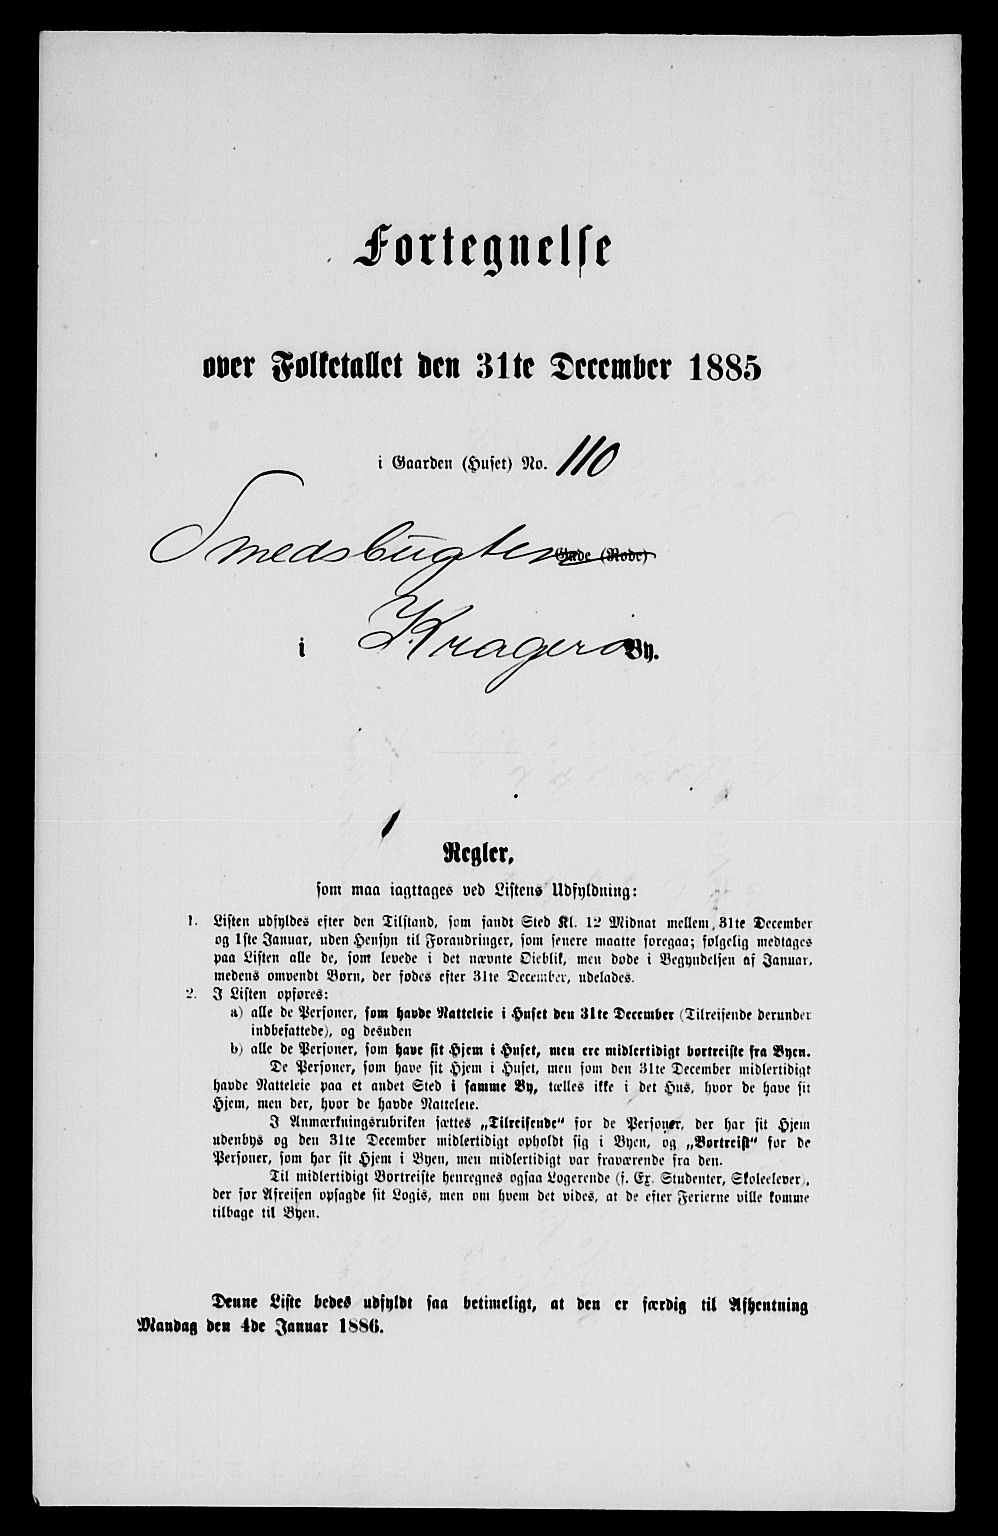 Fortegnelse
over Folketallet den 31te December 1885
i Gaarden (Huset) No. 110
Smedsbugten Gade (Rode)
i Kragerø By.
Regler,
som maa iagttages ved Listens Udfyldning:
1. Listen udfyldes efter den Tilstand, som fandt Sted Kl. 12 Midnat mellem 31te December
og 1ste Januar, uden Hensyn til Forandringer, som senere maatte foregaa; følgelig medtages
paa Listen alle de, som levede i det nævnte Øieblik, men døde i Begyndelsen af Januar,
medens omvendt Børn, der fødes efter 31te December, udelades.
2. I Listen opføres:
a) alle de Personer, som havde Natteleie i Huset den 31te December (Tilreisende derunder
indbefattede), og desuden
b) alle de Personer, som have sit Hjem i Huset, men ere midlertidigt bortreiste fra Byen.
De Personer, som have sit Hjem i Huset, men som den 31te December midlertidigt
havde Natteleie paa et andet Sted i samme By, tælles ikke i det Hus, hvor de have sit
Hjem, men der, hvor de havde Natteleie.
I Anmærkningsrubriken sættes „Tilreisende“ for de Personer, der har sit Hjem
udenbys og den 31te December midlertidigt opholdt sig i Byen, og „Bortreist“ for de
Personer, som har sit Hjem i Byen, men midlertidigt var fraværende fra den.
Til midlertidigt Bortreiste henregnes ogsaa Logerende (f. Ex. Studenter, Skoleelever),
der før Afreisen opsagde sit Logis, men om hvem det vides, at de efter Ferierne ville komme
tilbage til Byen.
Denne Liste bedes udfyldt saa betimeligt, at den er færdig til Afhentning
Mandag den 4de Januar 1886.